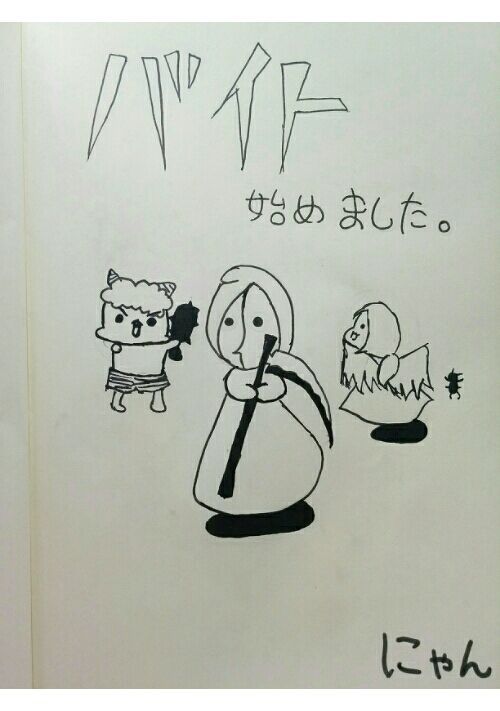 バイト
始めました。
にゃん